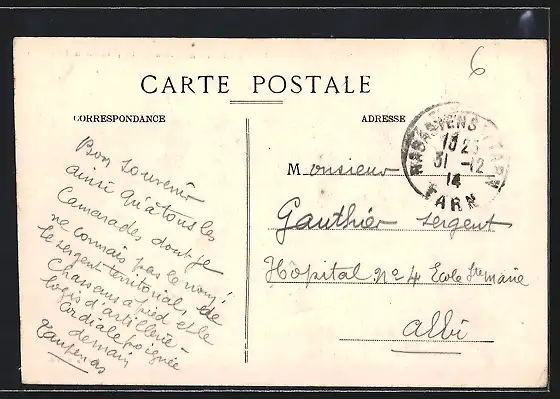 6
CARTE POSTALE
CORRESPONDANCE
ADRESSE
Bon souvenir
ainsi qu'à tous les
Camarades dont je
ne connais pas le nom!
le sergent territorial, de
Chasseurs à pied et le
logis d'artillerie -
Cordiale poignée
de main
RABASTENS TARN
13 25
31 -12
14
TARN
Monsieur
Gauthier sergent
Hôpital No 4 Ecole Ste marie
albi